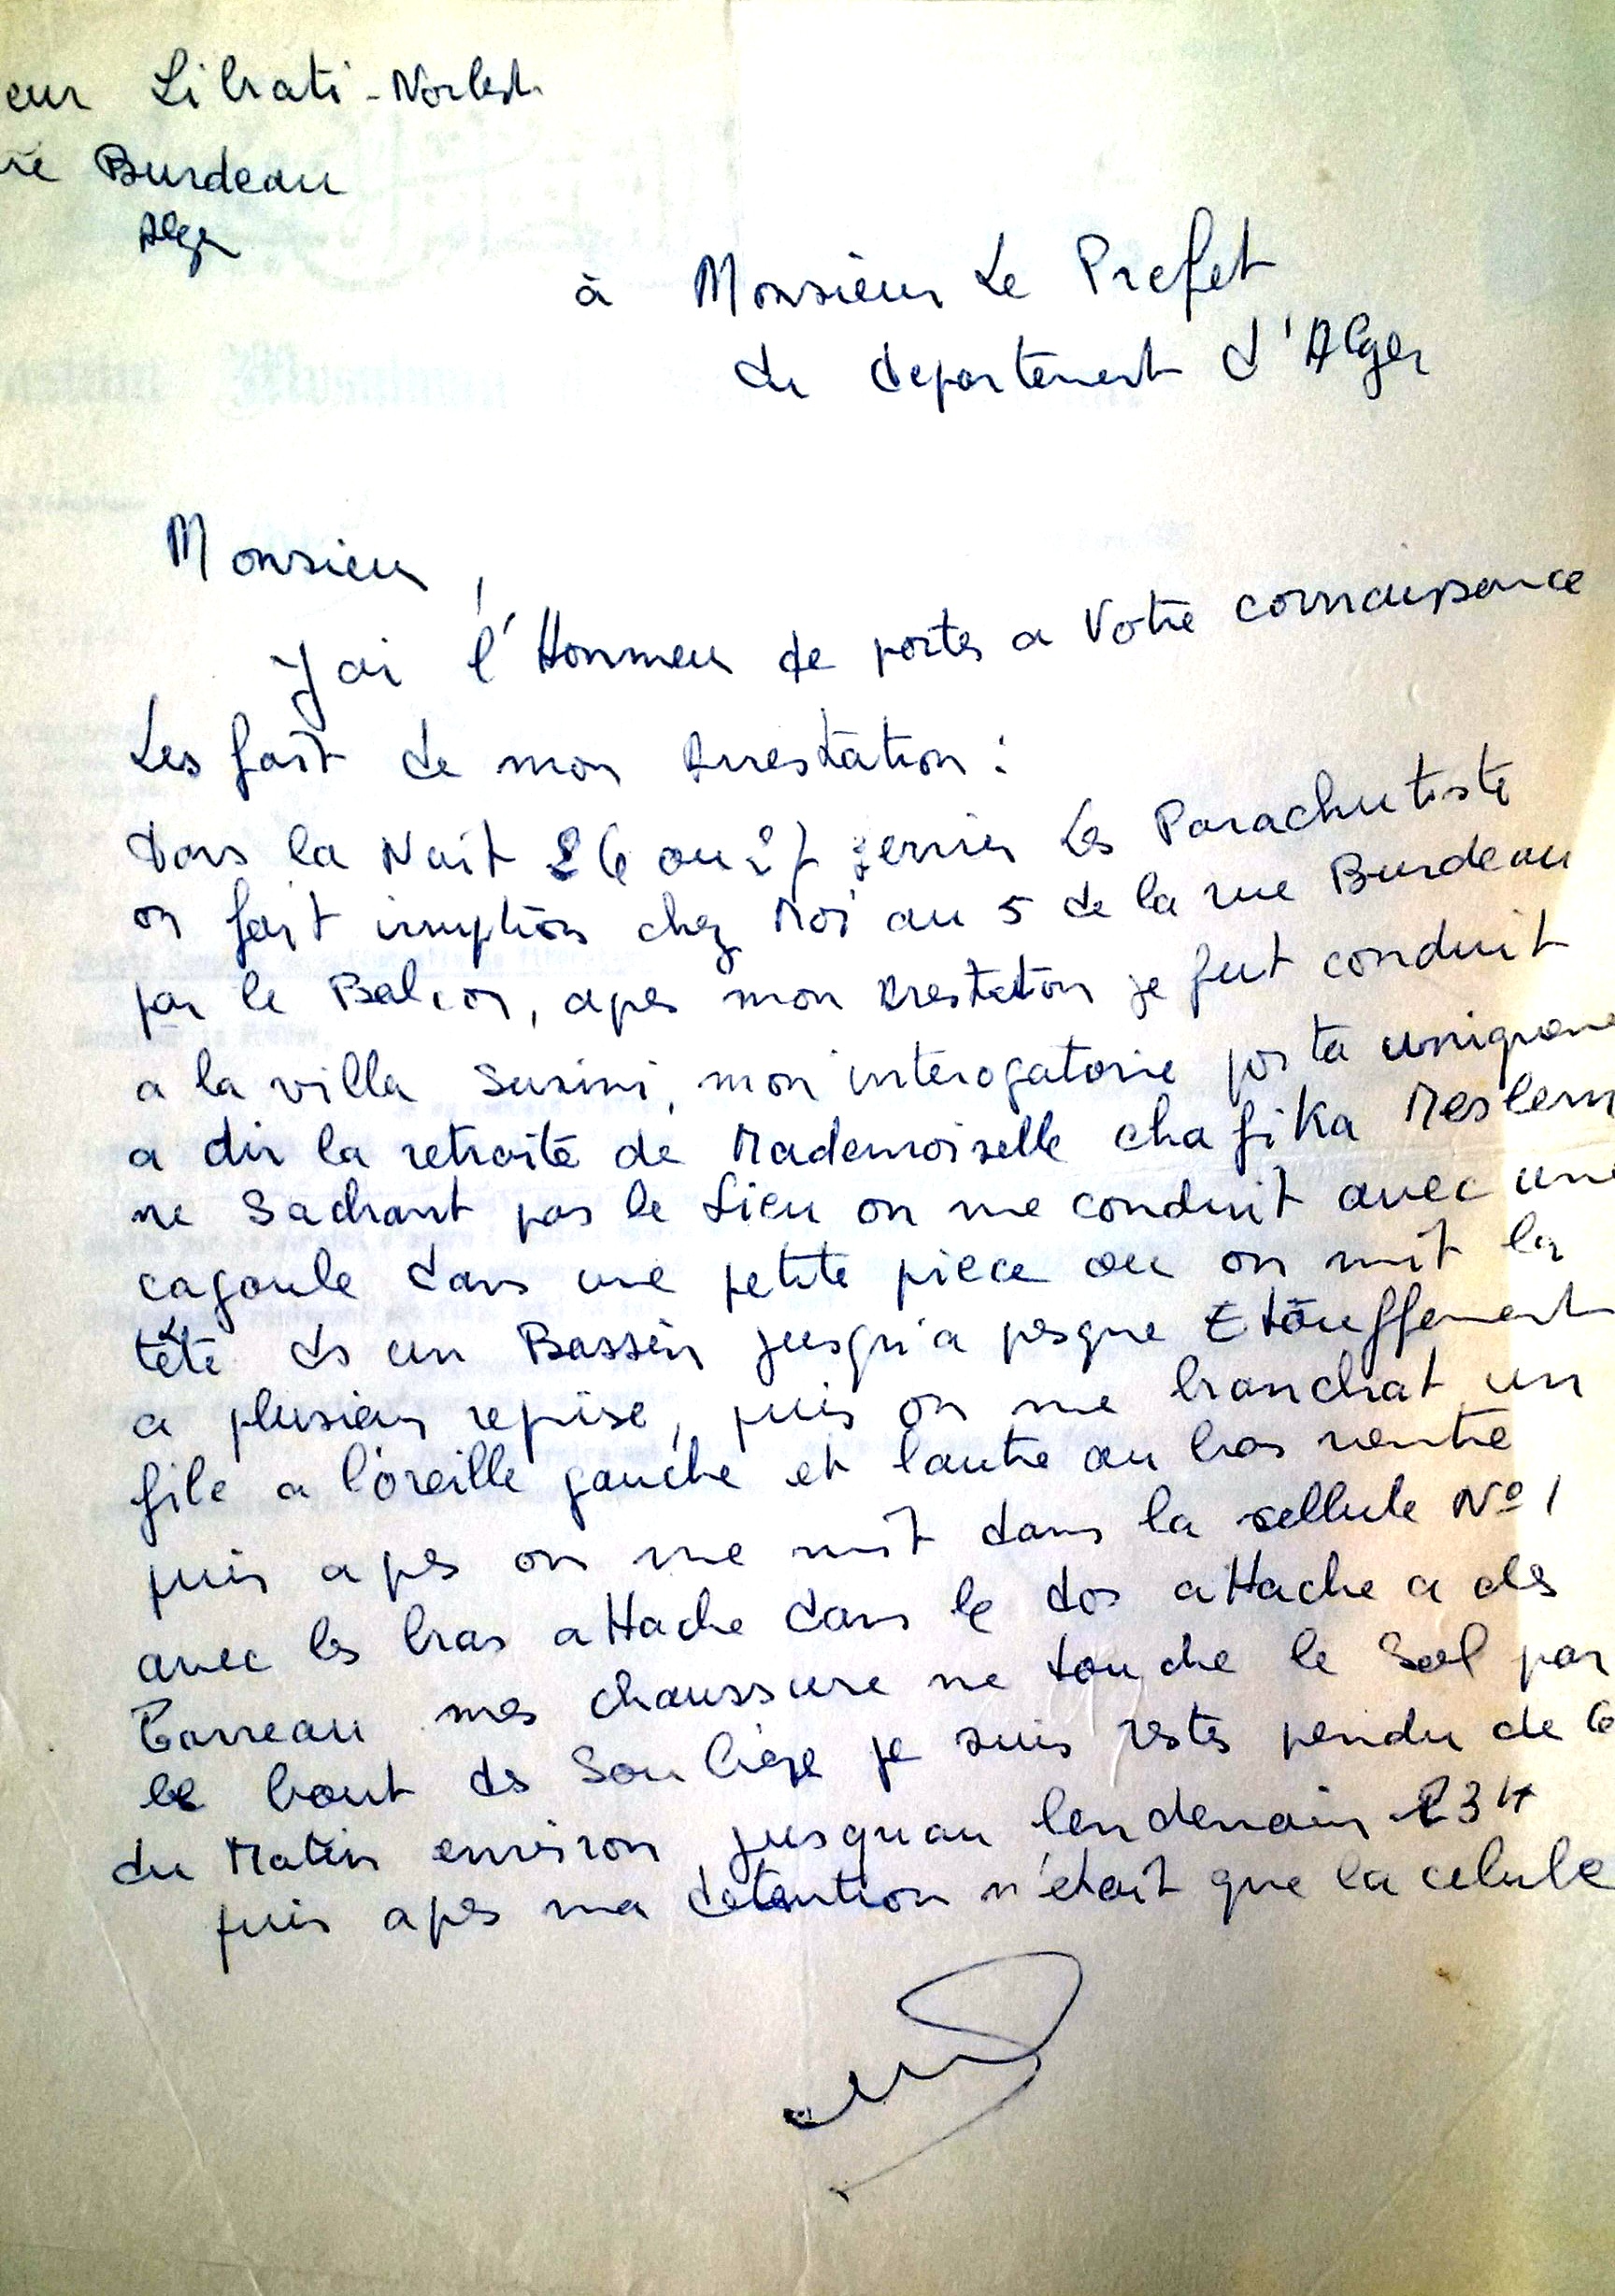 eur Librati-Norbert
rue Burdeau
Alger
à Monsieur Le Prefet
du departement d'Alger
Monsieur,
J'ai l'Honneur de porter a Votre connaissance
Les fait de mon Arrestation :
Dans la Nuit 26 ou 27 Les Parachutiste
on fait irruption chez Moi au 5 de la rue Burdeau
par le Balcon, apes mon Arestation je fut conduit
a la villa Susini, mon interogatoire porta uniqueme
a dir la retraite de Mademoiselle chafika Meslem
ne Sachant pas le Lieu on me conduit avec une
cagoule dans une petite piece ou on mit la
tête ds un Bassin jusqu'a pesque Etouffement
a plusieur reprise, puis on me branchat un
file a l'oreille gauche et lautre au bas ventre
puis apes on me mit dans la sellule Nº 1
avec les bras attache dans le dos attache a des
Barreau mes chaussure ne touche le Sol par
le bout ds Soulieze je suis restes pendu de 6
du Matin environ jusquau lendemain 23H
puis apes ma detention n'était que la celule